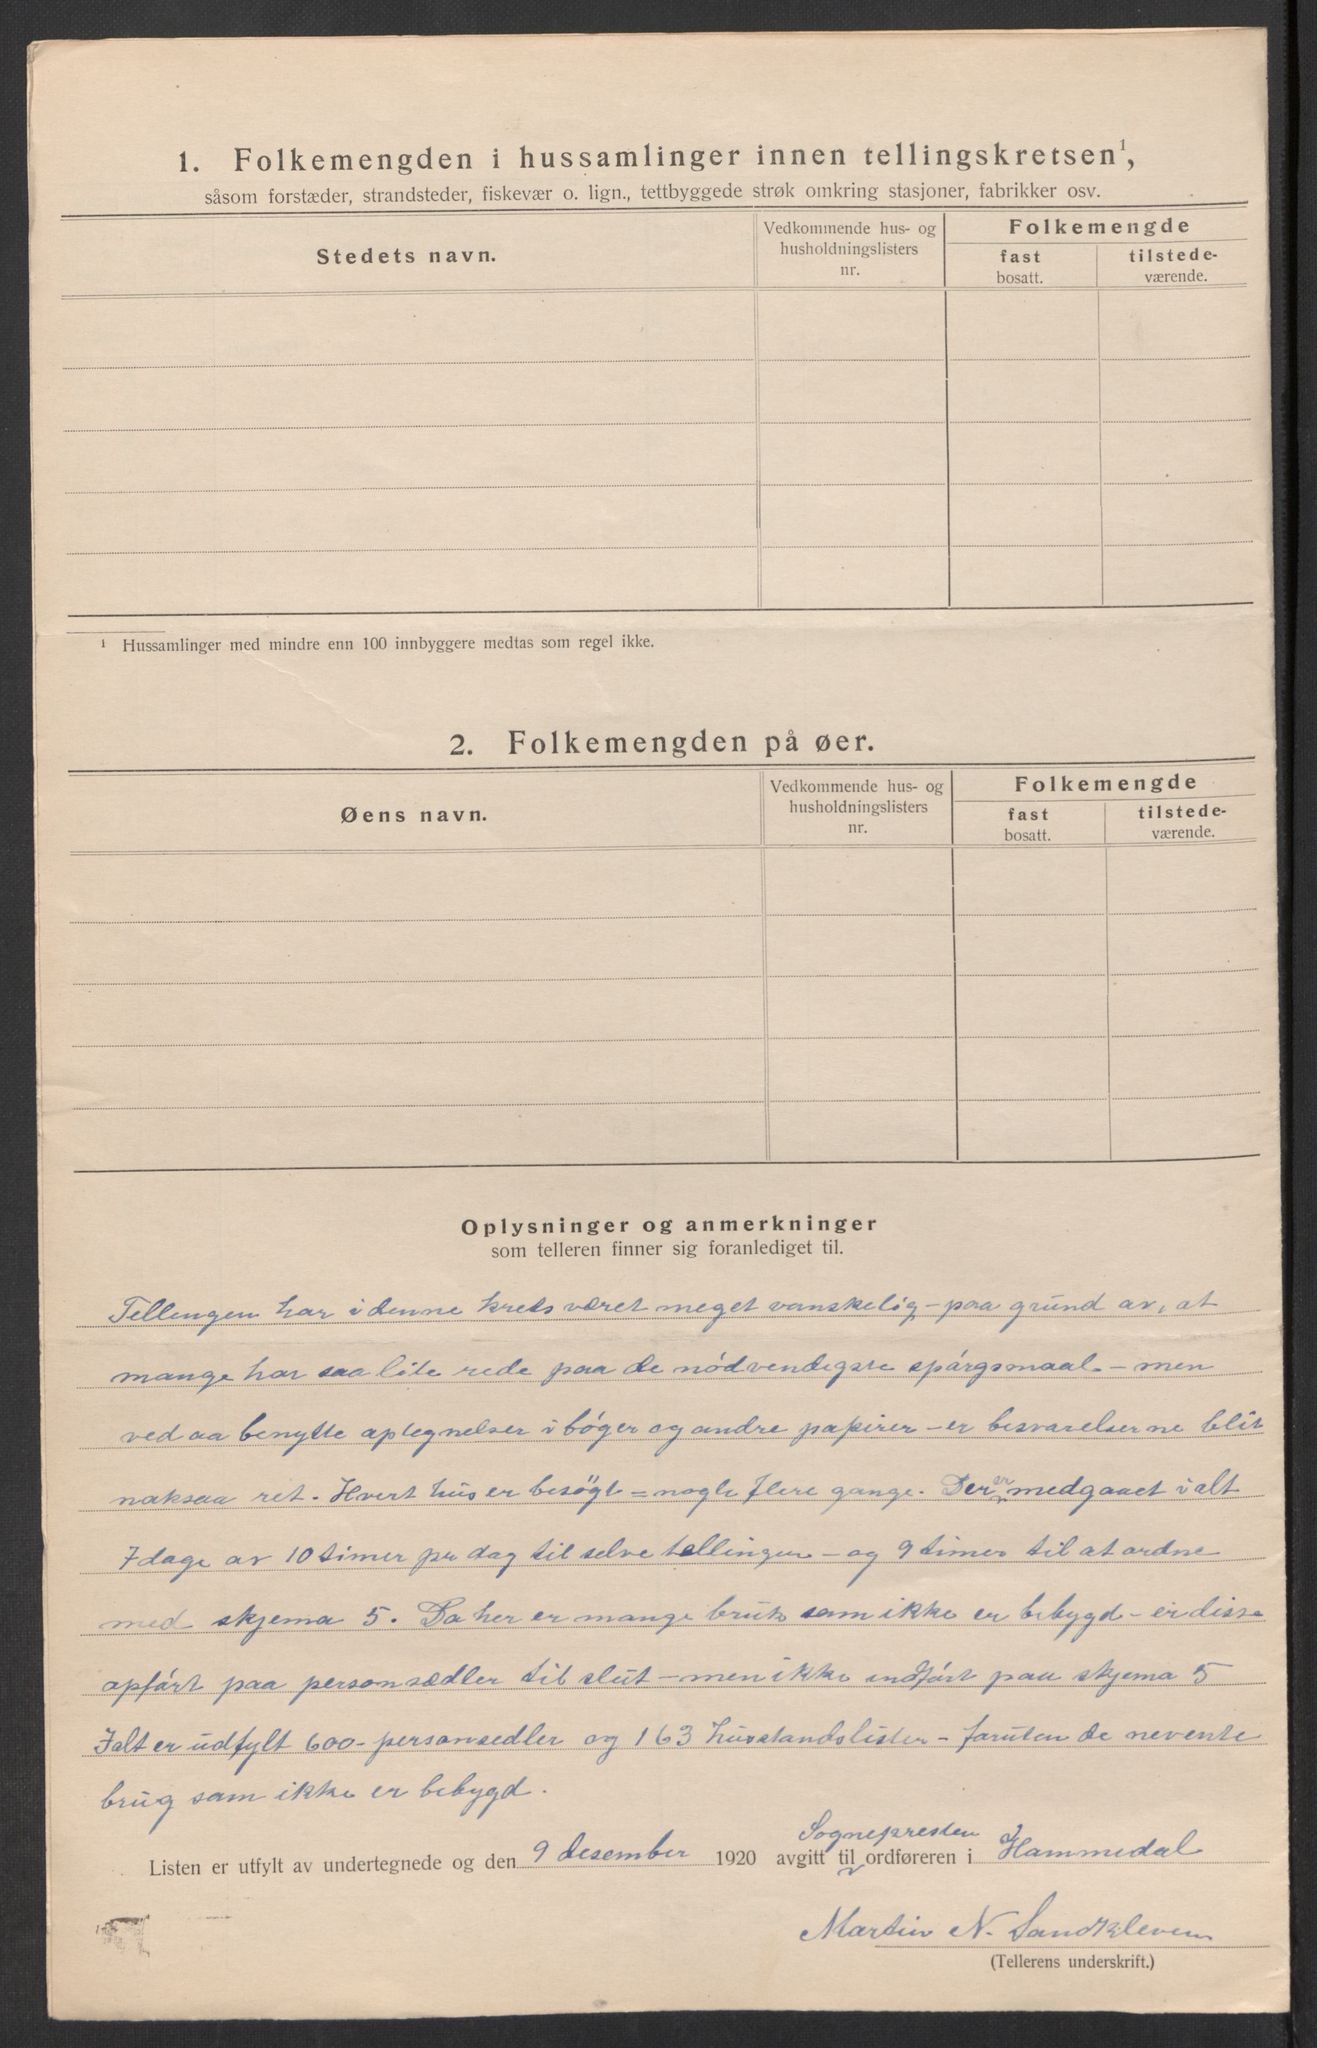 1. Folkemengden i hussamlinger innen tellingskretsen¹,
såsom forstæder, strandsteder, fiskevær o. lign., tettbyggede strøk omkring stasjoner, fabrikker osv.
Stedets navn.
Vedkommende hus- og
husholdningslisters
nr.
Folkemengde
fast
bosatt.
tilstede-
værende.
¹ Hussamlinger med mindre enn 100 innbyggere medtas som regel ikke.
2. Folkemengden på øer.
Øens navn.
Vedkommende hus- og
husholdningslisters
nr.
Folkemengde
fast
bosatt.
tilstede-
værende.
Oplysninger og anmerkninger
som telleren finner sig foranlediget til.
Tellingen har i denne kreds været meget vanskelig - paa grund av, at
mange har saa lite rede paa de nödvendigste spörgsmaal - men
ved aa benytte optegnelser i böger og andre papirer - er besvarelserne blit
noksaa ret. Hvert hus er besögt = nogle flere gange. Der er medgaaet ialt
7 dage av 10 timer pr dag til selve tellingen - og 9 timer til at ordne
med skjema 5. Da her er mange bruk som ikke er bebygd - er disse
opfört paa personsedler til slut - men ikke indfört paa skjema 5
Ialt er udfylt 600 - personsedler og 163 husstandslister - foruten de nevente
brug som ikke er bebygd.
Sognepresten
Listen er utfylt av undertegnede og den 9 desember 1920 avgitt til ordføreren i Hommedal
Martin N. Sandkleven
(Tellerens underskrift.)